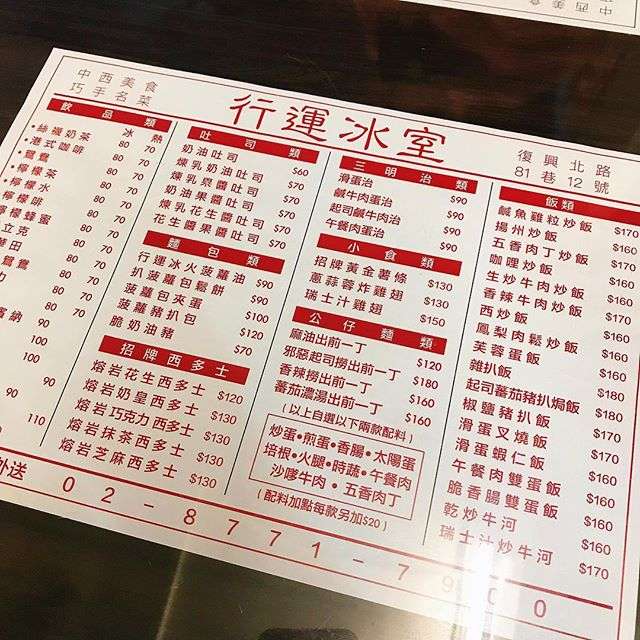 中西美食
巧手名菜
行運冰室
復興北路
81巷12號
飲品類
冰 熱
絲襪奶茶 80 70
港式咖啡 80 70
鴛鴦 80 70
檸檬茶 80 70
檸檬水 80 70
檸檬啡 80 70
檸檬蜂蜜 80 70
立克 80 70
田 80 70
鴛鴦 80 70
力 80 70
90
100
100
90
90
110
吐司類
奶油吐司 $60
煉乳奶油吐司 $70
煉乳果醬吐司 $70
奶油果醬吐司 $70
煉乳花生醬吐司 $70
花生果醬吐司 $70
麵包類
行運冰火菠蘿油 $90
扒菠蘿包鬆餅 $90
菠蘿包夾蛋 $100
菠蘿豬扒包 $120
脆奶油豬 $70
招牌西多士
熔岩花生西多士 $120
熔岩奶皇西多士 $130
熔岩巧克力西多士 $130
熔岩抹茶西多士 $130
熔岩芝麻西多士 $130
三明治類
滑蛋治 $90
鹹牛肉蛋治 $90
起司鹹牛肉治 $90
午餐肉蛋治 $90
小食類
招牌黃金薯條 $130
蔥蒜蓉炸雞翅 $130
瑞士汁雞翅 $150
公仔麵類
麻油出前一丁 $120
邪惡起司撈出前一丁 $180
香辣撈出前一丁 $160
蕃茄濃湯出前一丁 $160
(以上自選以下兩款配料)
炒蛋•煎蛋•香腸•太陽蛋
培根•火腿•時蔬•午餐肉
沙嗲牛肉•五香肉丁
(配料加點每款另加$20)
飯類
鹹魚雞粒炒飯 $170
揚州炒飯 $160
五香肉丁炒飯 $160
咖哩炒飯 $160
生炒牛肉炒飯 $160
香辣牛肉炒飯 $160
西炒飯 $160
鳳梨肉鬆炒飯 $160
芙蓉蛋飯 $160
雜扒飯 $180
起司蕃茄豬扒焗飯 $180
椒鹽豬扒飯 $170
滑蛋叉燒飯 $170
滑蛋蝦仁飯 $170
午餐肉雙蛋飯 $160
脆香腸雙蛋飯 $160
乾炒牛河 $160
瑞士汁炒牛河 $170
外送 02-8771-7900
中西美食